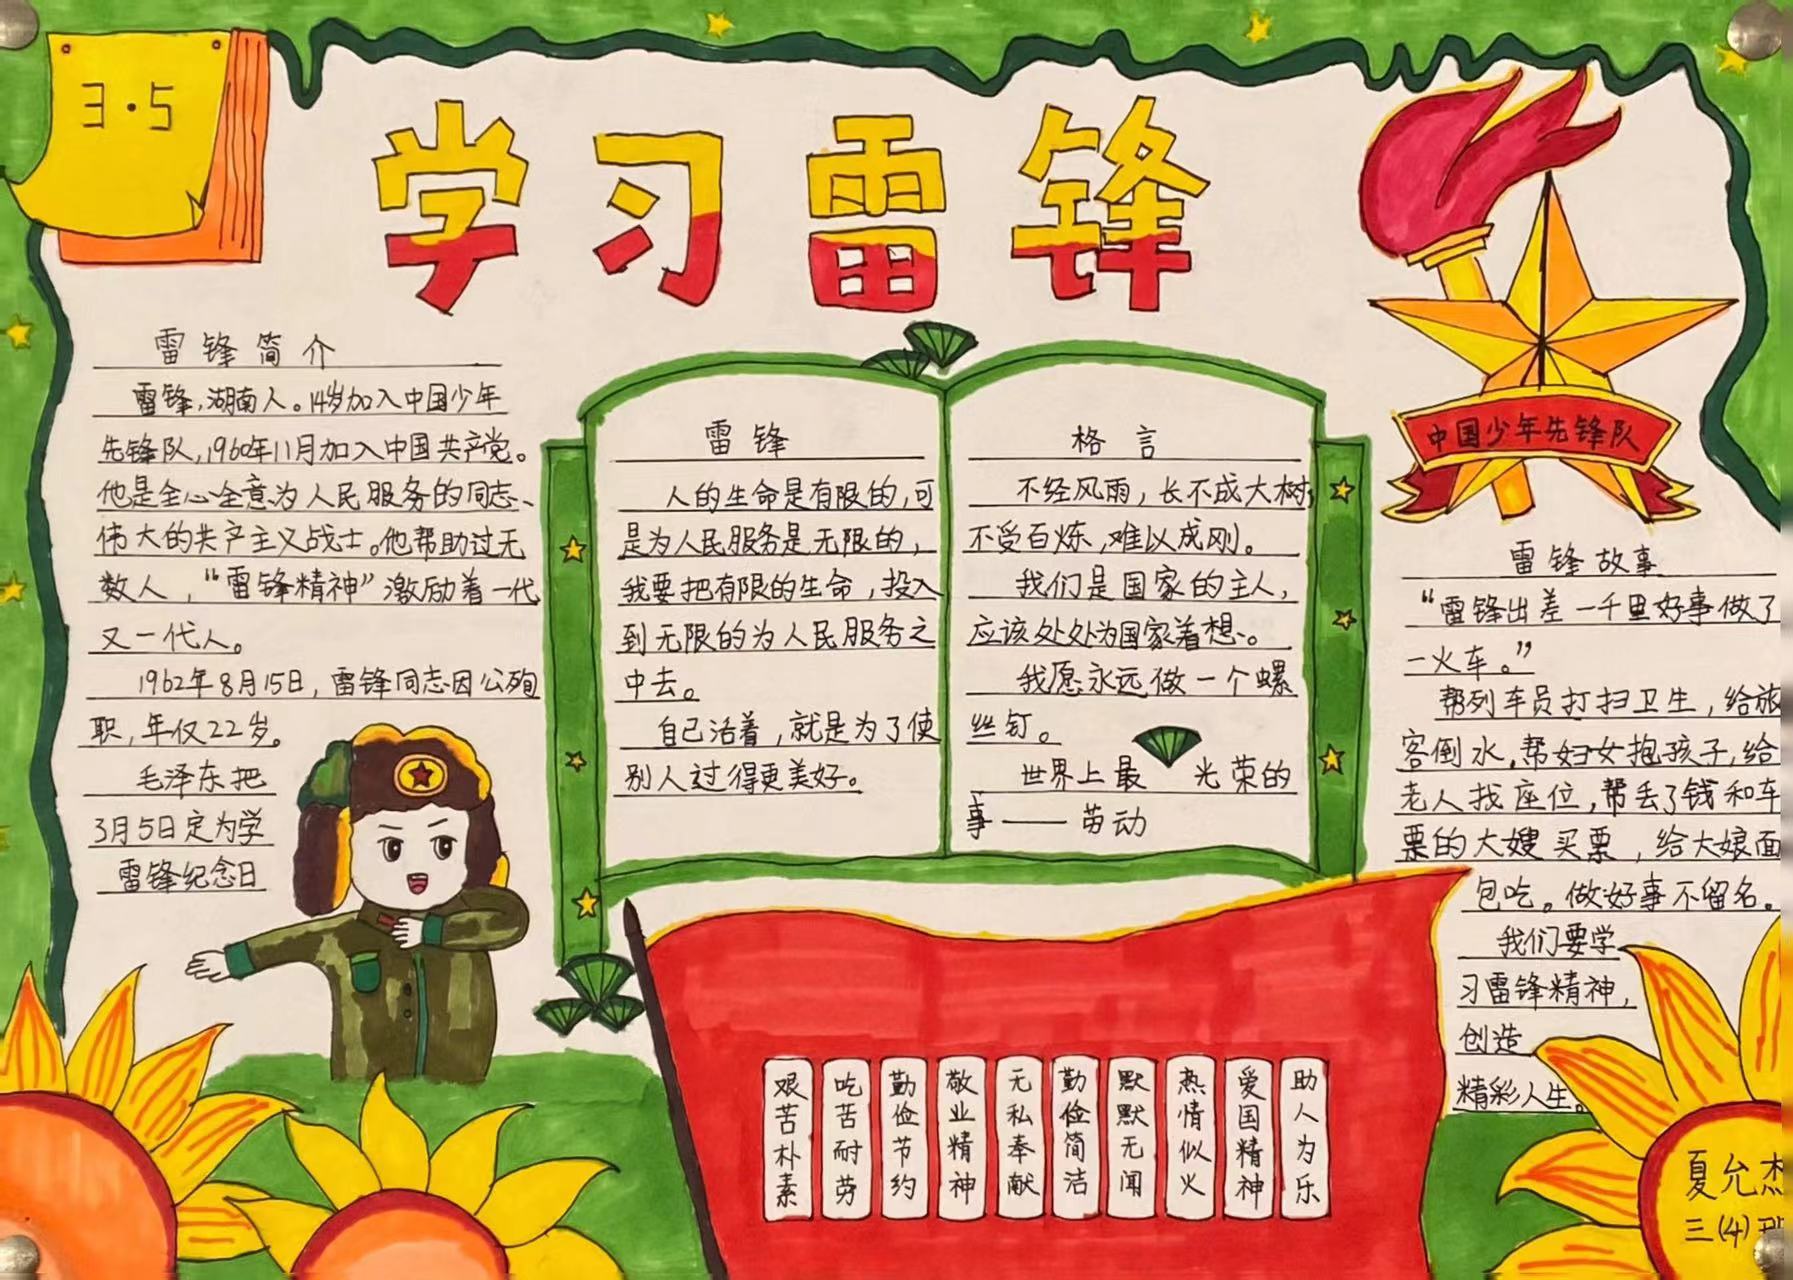 3·5
学习雷锋
雷锋简介
雷锋,湖南人。14岁加入中国少年
先锋队,1960年11月加入中国共产党。
他是全心全意为人民服务的同志、
伟大的共产主义战士。他帮助过无
数人，“雷锋精神”激励着一代
又一代人。
1962年8月15日，雷锋同志因公殉
职,年仅22岁。
毛泽东把
3月5日定为学
雷锋纪念日
雷锋
人的生命是有限的,可
是为人民服务是无限的，
我要把有限的生命，投入
到无限的为人民服务之
中去。
自己活着，就是为了使
别人过得更美好。
格言
不经风雨，长不成大树；
不受百炼,难以成刚。
我们是国家的主人，
应该处处为国家着想。
我愿永远做一个螺
丝钉。
世界上最 光荣的
事——劳动
中国少年先锋队
雷锋故事
“雷锋出差一千里好事做了
一火车。”
帮列车员打扫卫生，给旅
客倒水,帮妇女抱孩子,给
老人找座位,帮丢了钱和车
票的大嫂买票，给大娘面
包吃。做好事不留名。
我们要学
习雷锋精神，
创造
精彩人生。
艰苦朴素
吃苦耐劳
勤俭节约
敬业精神
无私奉献
勤俭简洁
默默无闻
热情似火
爱国精神
助人为乐
夏允杰
三(4)班